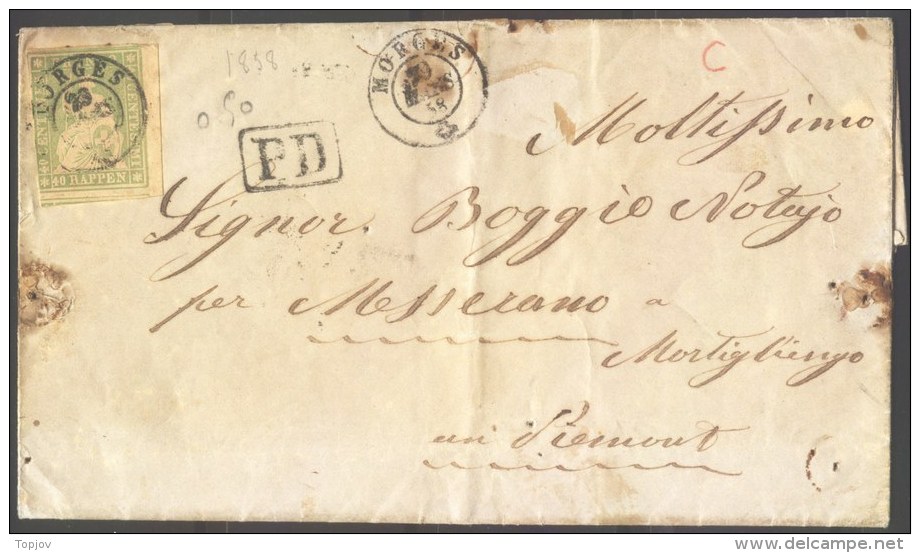 MORGES
1858
MORGES
58
C
40 RAPPEN
P.D
Moltissimo
Signor. Boggio Notajo
per Messerano a
Mortigliengo
en Piemont
Topjov
delcampe.net